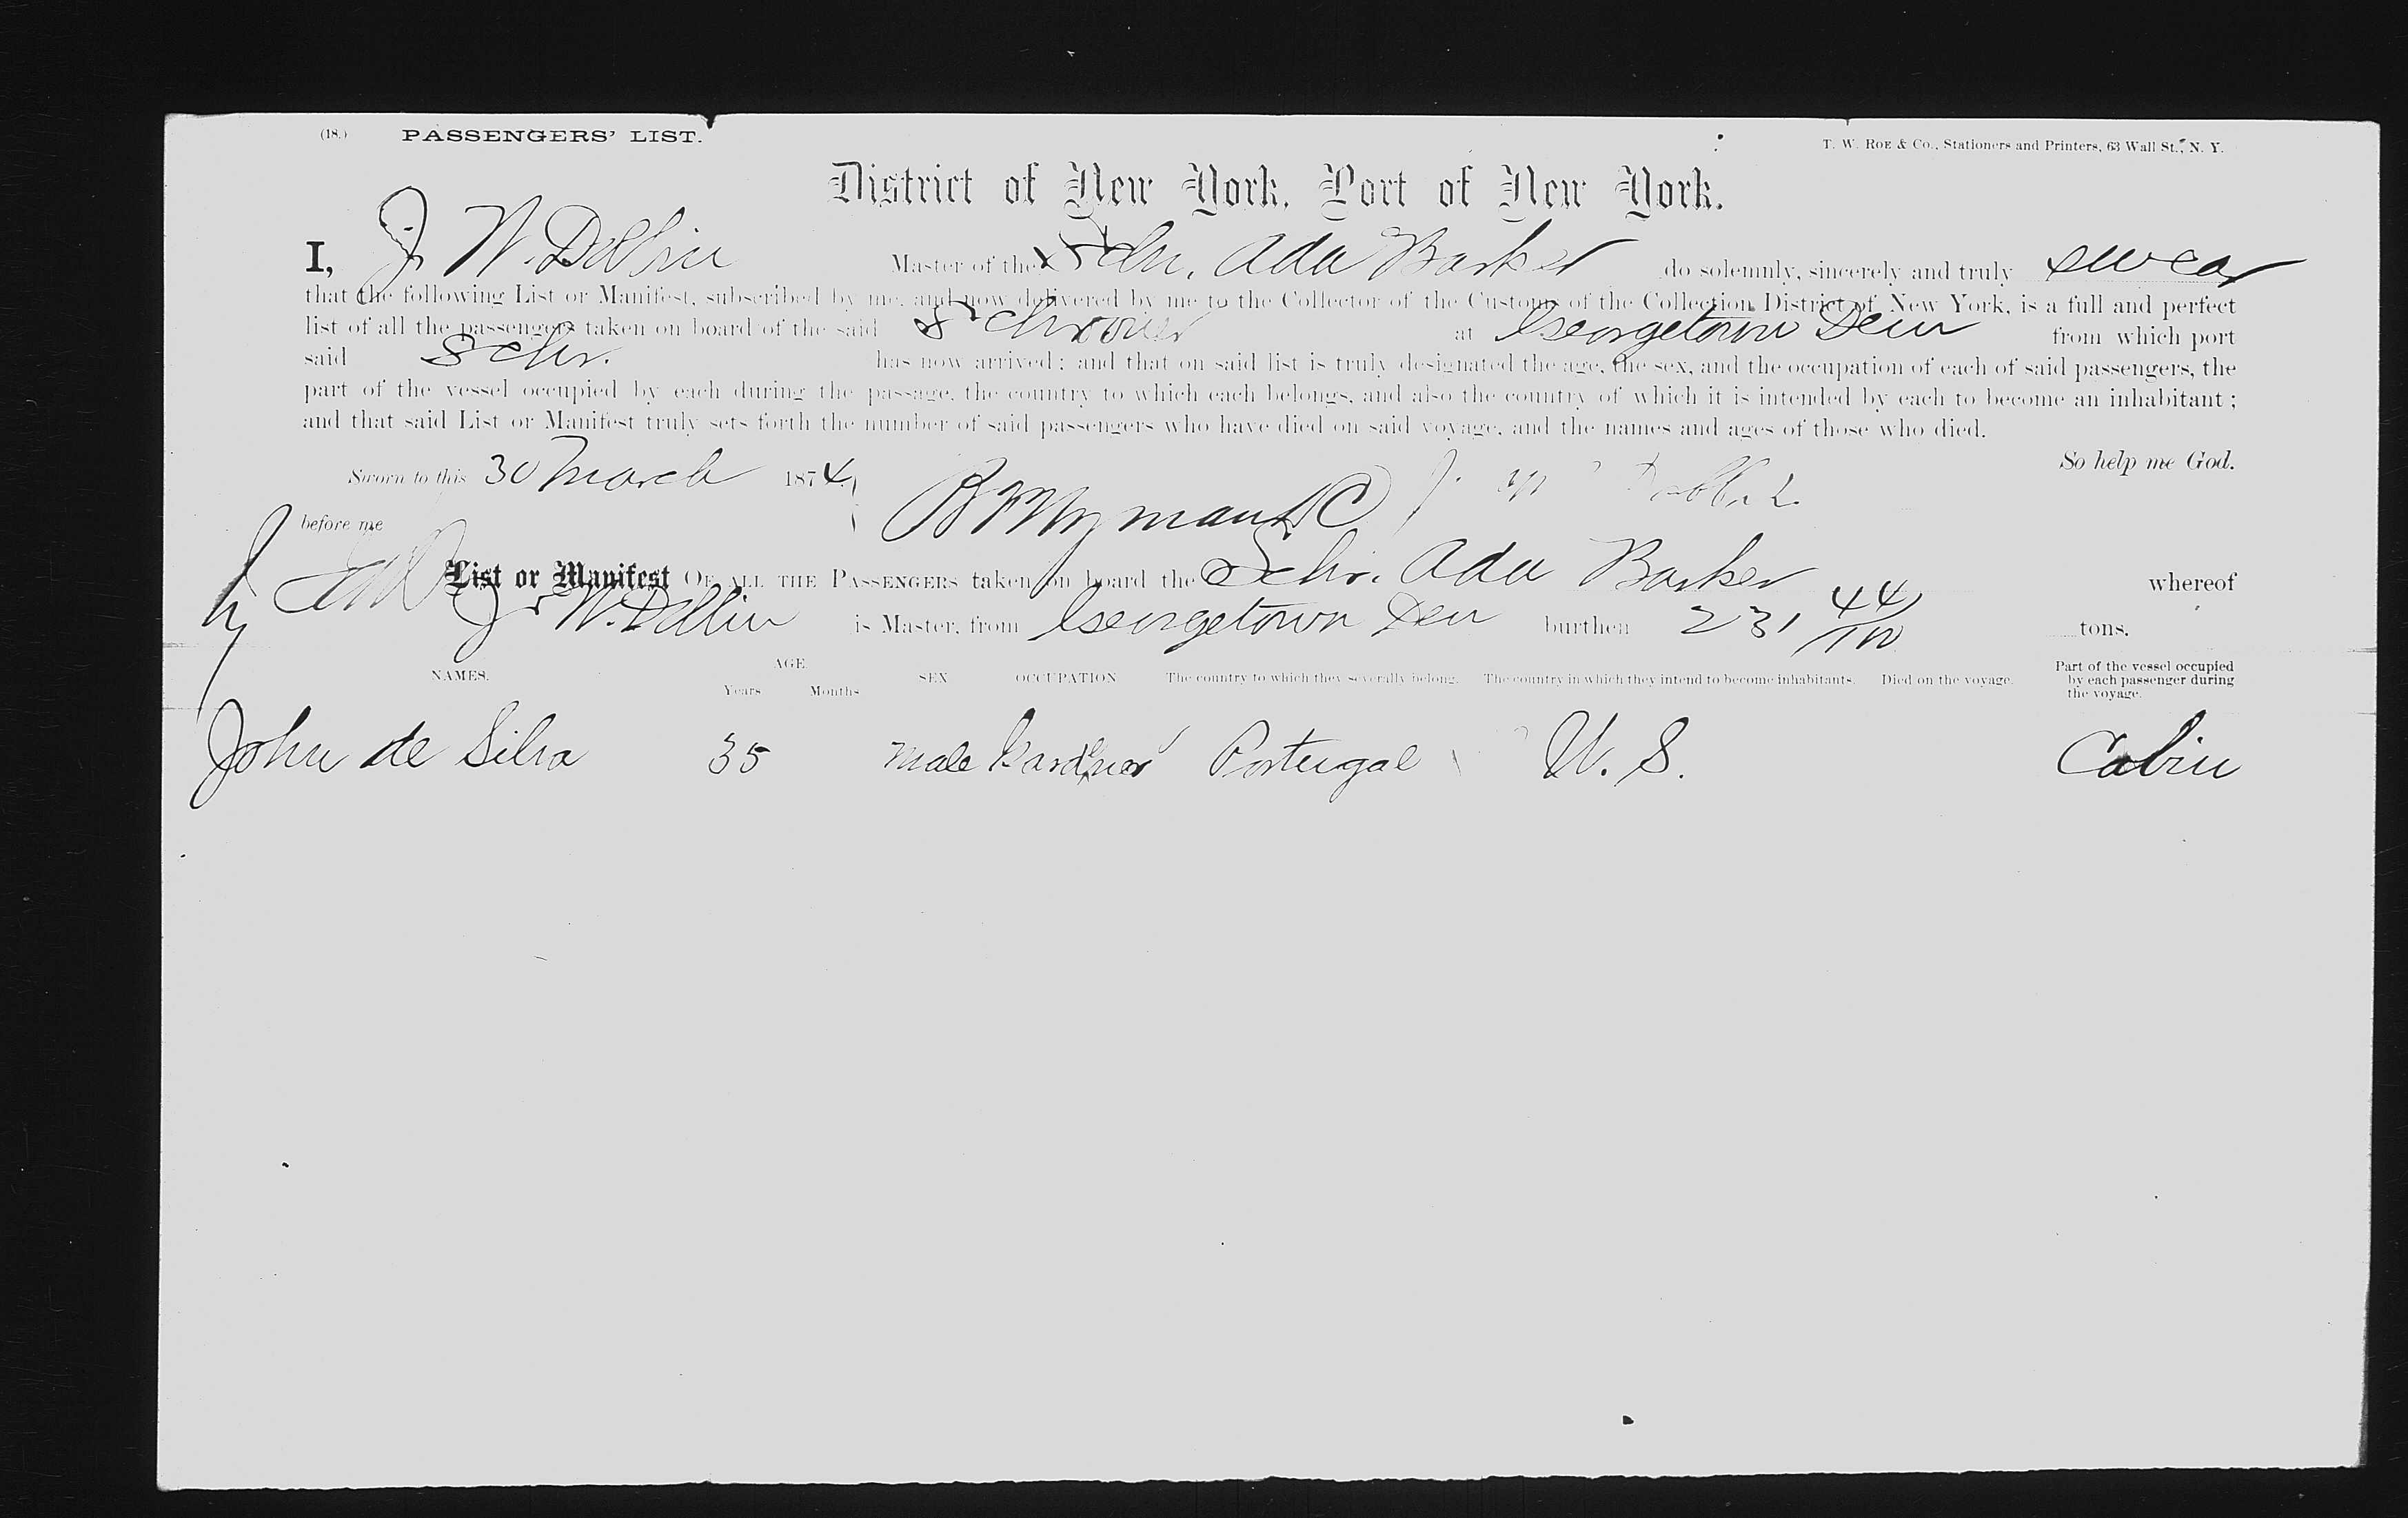 (18.) PASSENGERS' LIST. T. W. ROE & CO., Stationers and Printers, 63 Wall St., N. Y.
District of New York, Port of New York.
I, J. W. Master of the Schr. Ada Barker do solemnly, sincerely and truly swear
that the following List or Manifest, subscribed by me, and now delivered by me to the Collector of the Customs of the Collection District of New York, is a full and perfect
list of all the passengers taken on board of the said Schooner at Georgetown Dem from which port
said Schr. has now arrived; and that on said list is truly designated the age, the sex, and the occupation of each of said passengers, the
part of the vessel occupied by each during the passage, the country to which each belongs, and also the country of which it is intended by each to become an inhabitant;
and that said List or Manifest truly sets forth the number of said passengers who have died on said voyage, and the names and ages of those who died.
So help me God.
Sworn to this 30 March 1874
before me
List or Manifest OF ALL THE PASSENGERS taken on board the Schr. Ada Barker whereof
J. W. is Master, from Georgetown Dem burthen 231 44/100 tons.
NAMES. AGE. SEX OCCUPATION The country to which they severally belong. The country in which they intend to become inhabitants. Died on the voyage. Part of the vessel occupied by each passenger during the voyage.
Years Months
John de Silva 35 male Gardner Portugal U. S. Cabin